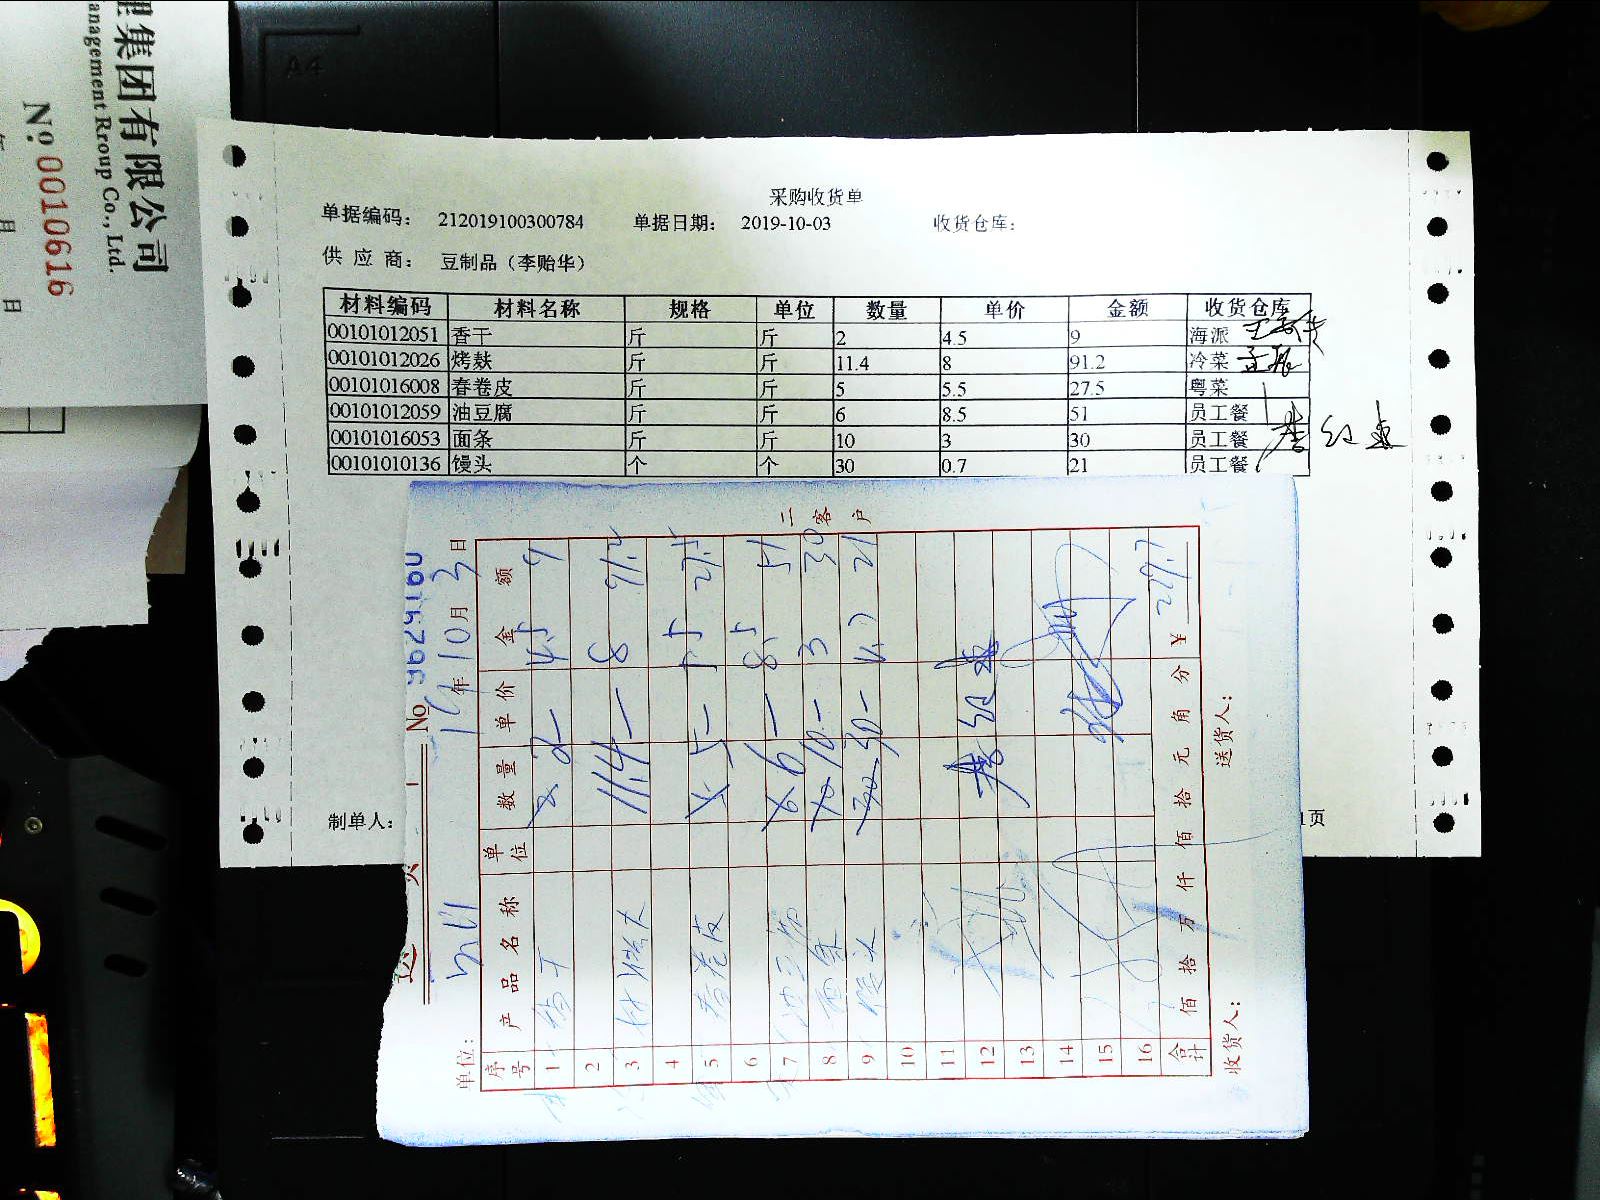 理集团有限公司
anagement Rroup Co., Ltd.
No 0010616
月
日
A4
采购收货单
单据编码： 212019100300784 单据日期： 2019-10-03 收货仓库：
供 应 商： 豆制品（李贻华）
材料编码 材料名称 规格 单位 数量 单价 金额 收货仓库
00101012051 香干 斤 斤 2 4.5 9 海派
00101012026 烤麸 斤 斤 11.4 8 91.2 冷菜
00101016008 春卷皮 斤 斤 5 5.5 27.5 粤菜
00101012059 油豆腐 斤 斤 6 8.5 51 员工餐
00101016053 面条 斤 斤 10 3 30 员工餐
00101010136 馒头 个 个 30 0.7 21 员工餐
制单人：
1页
三 客 户
No 9629160
19年10月3日
单位：
序号 产品名称 单位 数量 单价 金额
1 香干 2 4.5 9
2
3 11.4 8 91.2
4
5 春卷皮 5 5.5 27.5
6
7 6 8.5 51
8 面条 10 3 30
9 馒头 30 0.7 21
10
11
12
13
14
15
16
合计 佰 拾 万 仟 佰 拾 元 角 分 ￥229.7
收货人： 送货人：